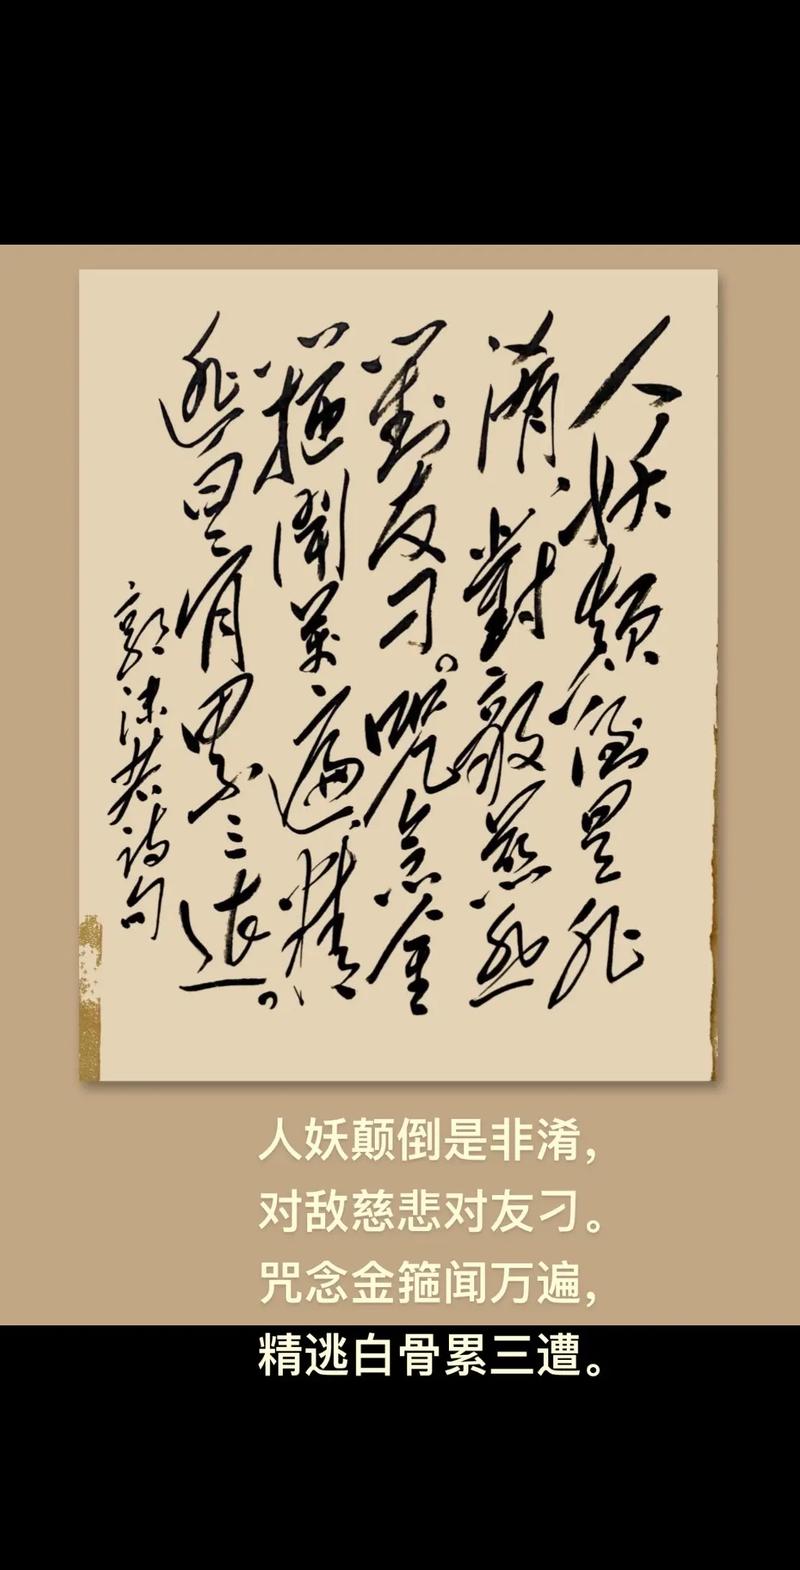 人妖颠倒是非
淆，對敵慈悲
對友刁。咒念金
箍闻萬遍，精
逃白骨累三遭。
郭沫若诗句
人妖颠倒是非淆，
对敌慈悲对友刁。
咒念金箍闻万遍，
精逃白骨累三遭。